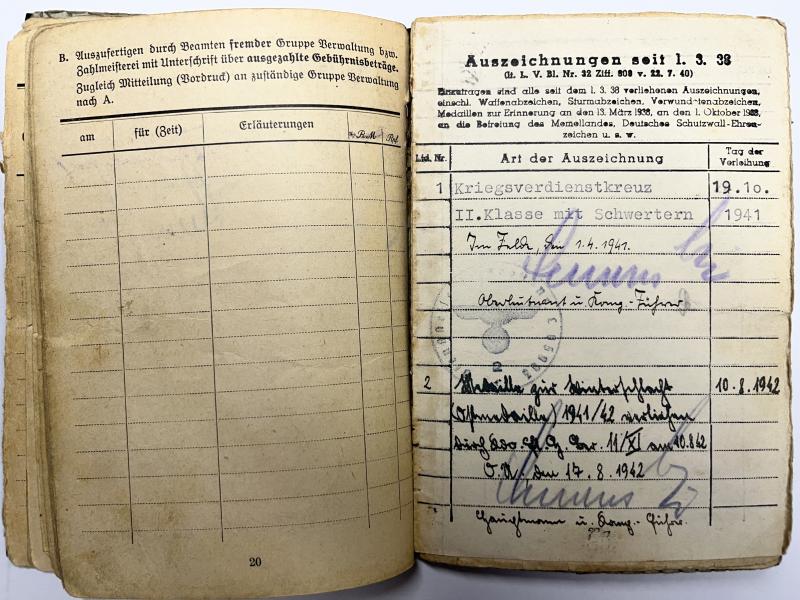 B. Auszufertigen durch Beamten fremder Gruppe Verwaltung bzw.
Zahlmeisterei mit Unterschrift über ausgezahlte Gebührnisbeträge.
Zugleich Mitteilung (Vordruck) an zuständige Gruppe Verwaltung
nach A.
am für (Zeit) Erläuterungen RM Rpf
20
Auszeichnungen seit 1. 3. 38
(lt. L. V. Bl. Nr. 32 Ziff. 808 v. 22. 7. 40)
Einzutragen sind alle seit dem 1. 3. 38 verliehenen Auszeichnungen,
einschl. Waffenabzeichen, Sturmabzeichen, Verwundetenabzeichen,
Medaillen zur Erinnerung an den 13. März 1938, an den 1. Oktober 1938,
an die Befreiung des Memellandes, Deutsches Schutzwall-Ehren-
zeichen u. s. w.
Lfd. Nr. Art der Auszeichnung Tag der Verleihung
1 Kriegsverdienstkreuz 19.10.
II.Klasse mit Schwertern 1941
Im Felde, den 1.4.1941.
Oberleutnant u. Komp.-Führer
2
2 Medaille zur Winterschlacht 10.8.1942
(Ostmedaille) 1941/42 verliehen
durch Ger. 11/XI am 10.8.42
O.U. den 17.8.1942
Hauptmann u. Komp.-Führ.